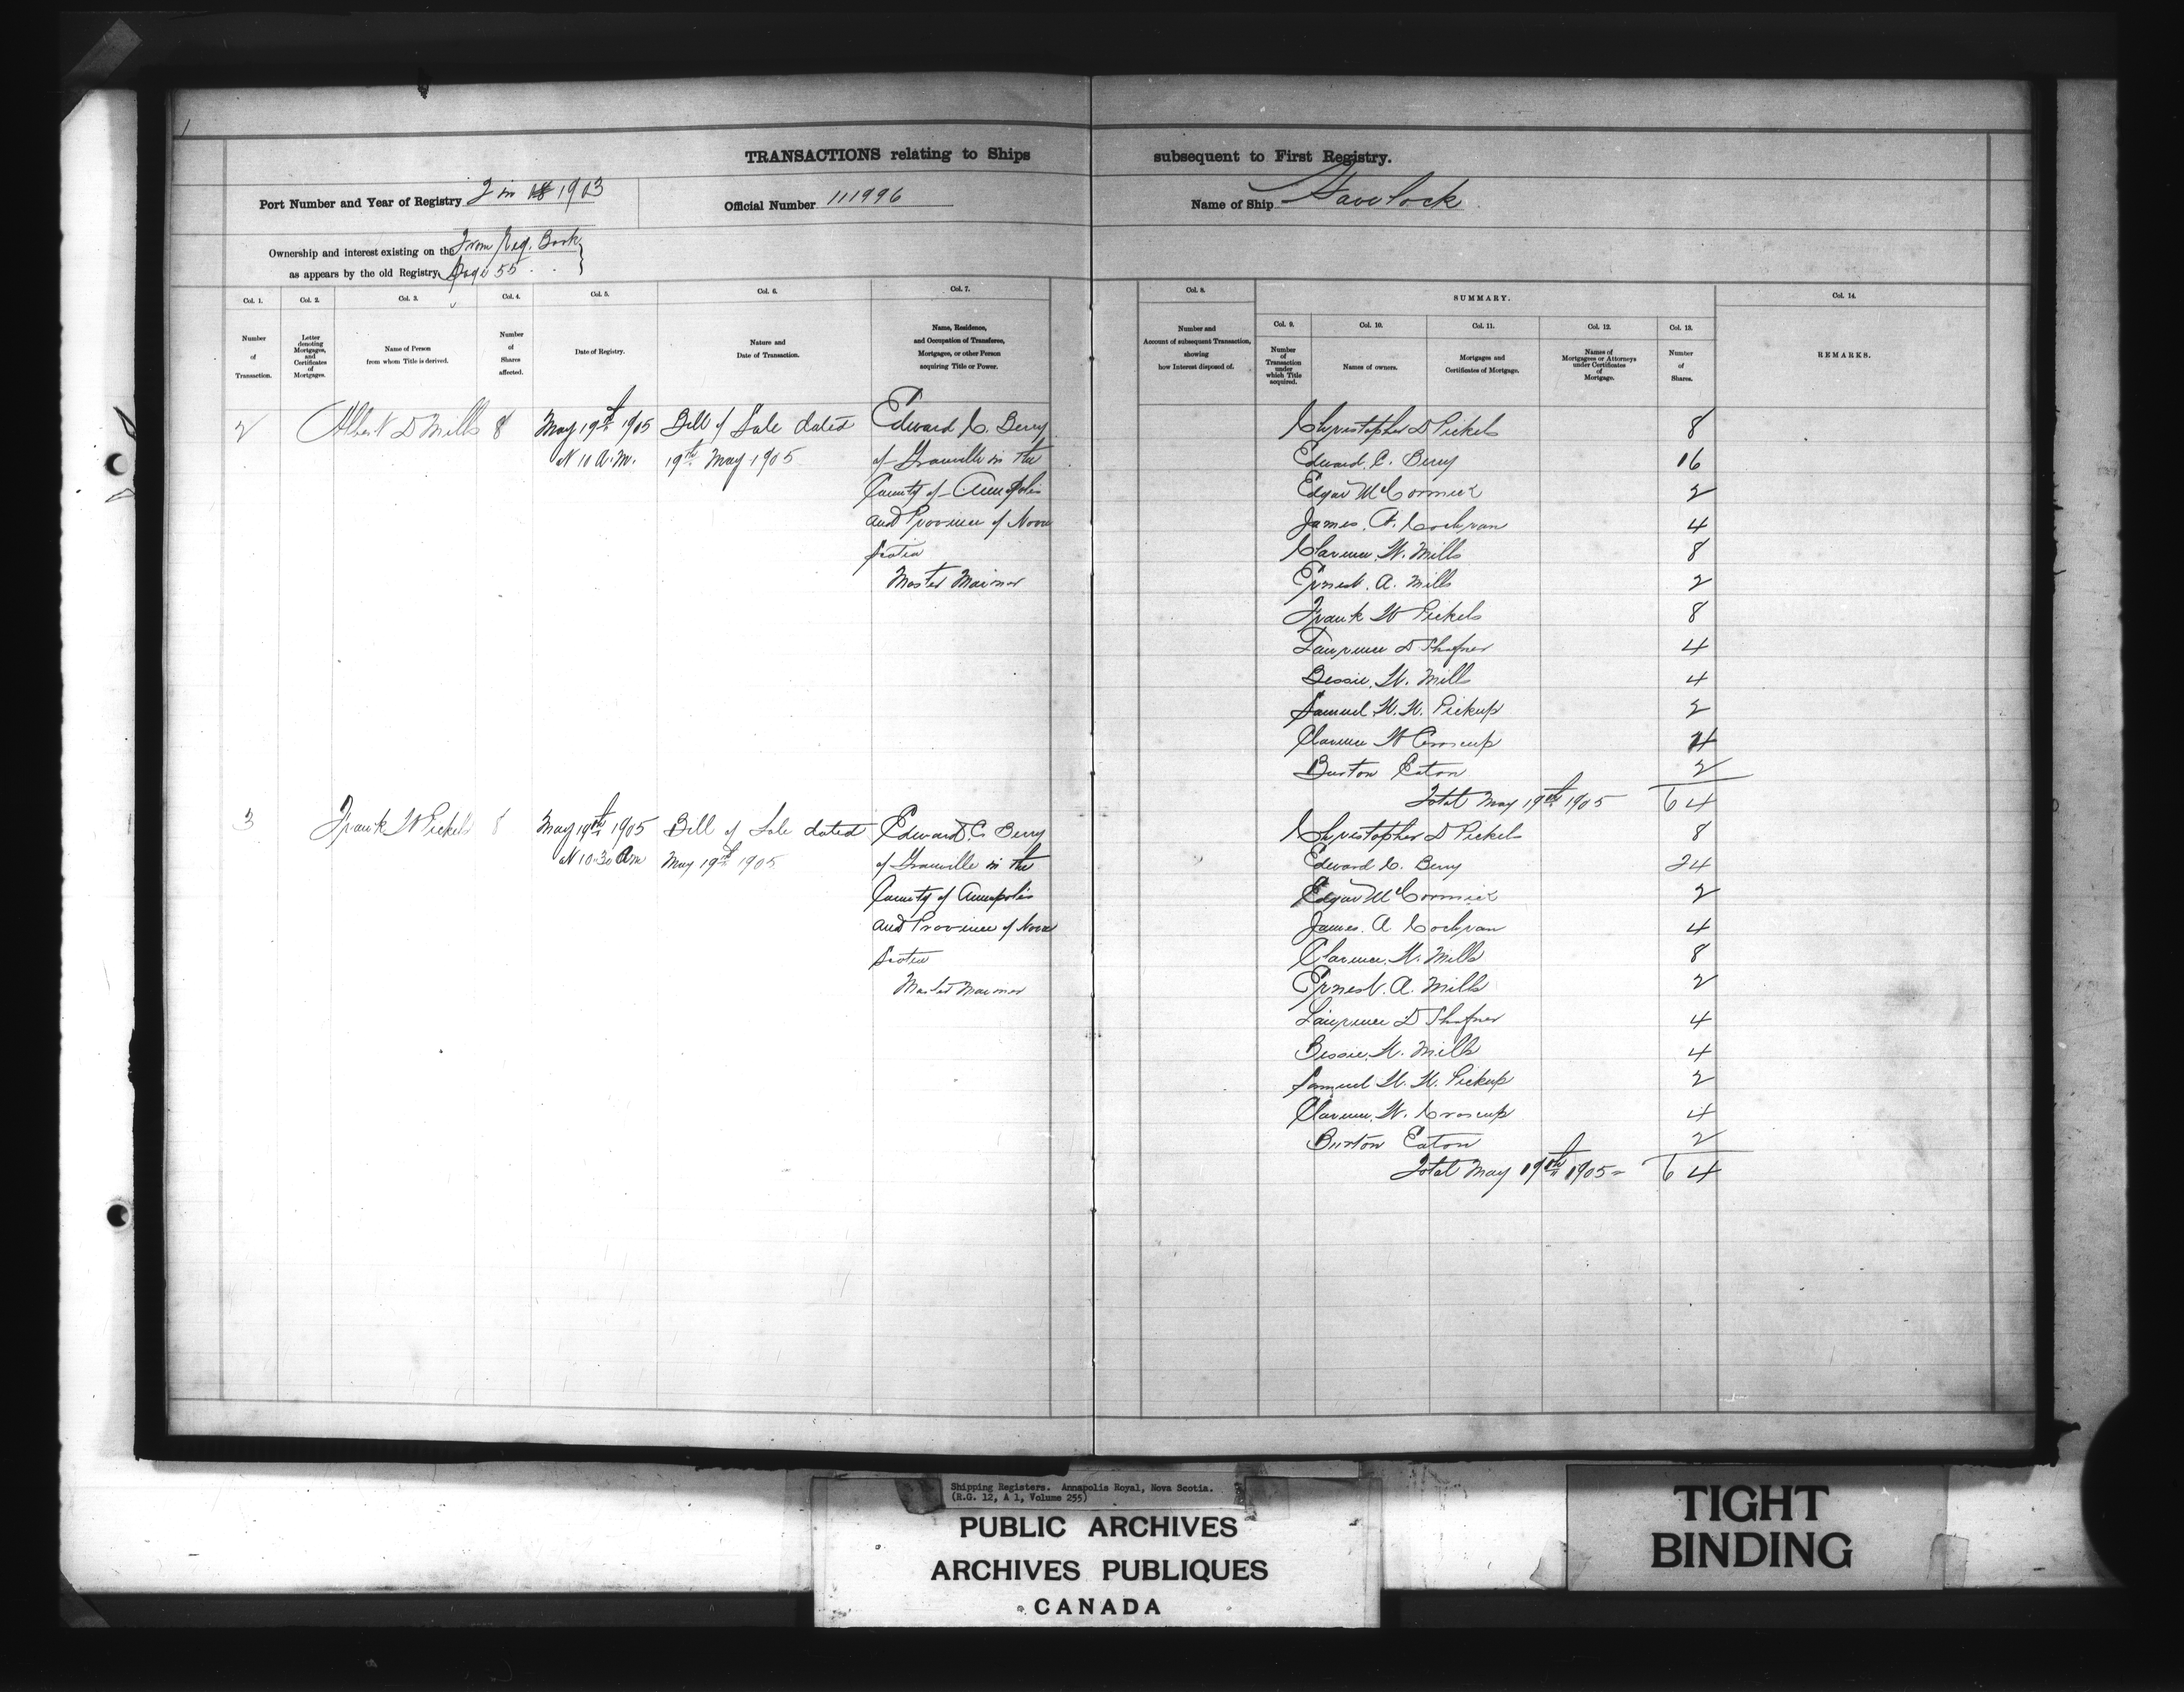 1
TRANSACTIONS relating to Ships subsequent to First Registry.
Port Number and Year of Registry 2 in 18 1903
Official Number 111996
Name of Ship Havelock
Ownership and interest existing on the From Reg. Book
as appears by the old Registry Page 55
Col. 1.
Number
of
Transaction.
Col. 2.
Letter
denoting
Mortgages,
and
Certificates
of
Mortgages.
Col. 3.
Name of Person
from whom Title is derived.
Col. 4.
Number
of
Shares
affected.
Col. 5.
Date of Registry.
Col. 6.
Nature and
Date of Transaction.
Col. 7.
Name, Residence,
and Occupation of Transferee,
Mortgagee, or other Person
acquiring Title or Power.
Col. 8.
Number and
Account of subsequent Transaction,
showing
how Interest disposed of.
SUMMARY.
Col. 9.
Number
of
Transaction
under
which Title
acquired.
Col. 10.
Names of owners.
Col. 11.
Mortgages and
Certificates of Mortgage.
Col. 12.
Names of
Mortgagees or Attorneys
under Certificates
of
Mortgage.
Col. 13.
Number
of
Shares.
Col. 14.
REMARKS.
2 Albert D Mills 8 May 19th 1905 Bill of Sale dated Edward C. Berry
at 10 A.M. 19th May 1905 of Granville in the
County of Annapolis
and Province of Nova
Scotia
Master Mariner
Chyristopher D Pickels 8
Edward. C. Berry 16
Edgar McCormick 2
James. A. Cochran 4
Clarence. W. Mills 8
Ernest. A. Mills 2
Frank W Pickels 8
Lawrence D Shafner 4
Bessie. W. Mills 4
Samuel. W. W. Pickup 2
Clarence W Croscup 4
Burton Eaton 2
Total May 19th 1905 64
3 Frank W Pickels 8 May 19th 1905 Bill of Sale dated Edward C. Berry
at 10.30 Am May 19th 1905 of Granville in the
County of Annapolis
and Province of Nova
Scotia
Master Mariner
Chyristopher D Pickels 8
Edward C. Berry 24
Edgar McCormick 2
James. A Cochran 4
Clarence. W. Mills 8
Ernest. A. Mills 2
Lawrence D Shafner 4
Bessie. W. Mills 4
Samuel W. W. Pickup 2
Clarence. W. Croscup 4
Burton Eaton 2
Total May 19th 1905 = 64
Shipping Registers. Annapolis Royal, Nova Scotia.
(R.G. 12, A 1, Volume 255)
PUBLIC ARCHIVES
ARCHIVES PUBLIQUES
CANADA
TIGHT
BINDING